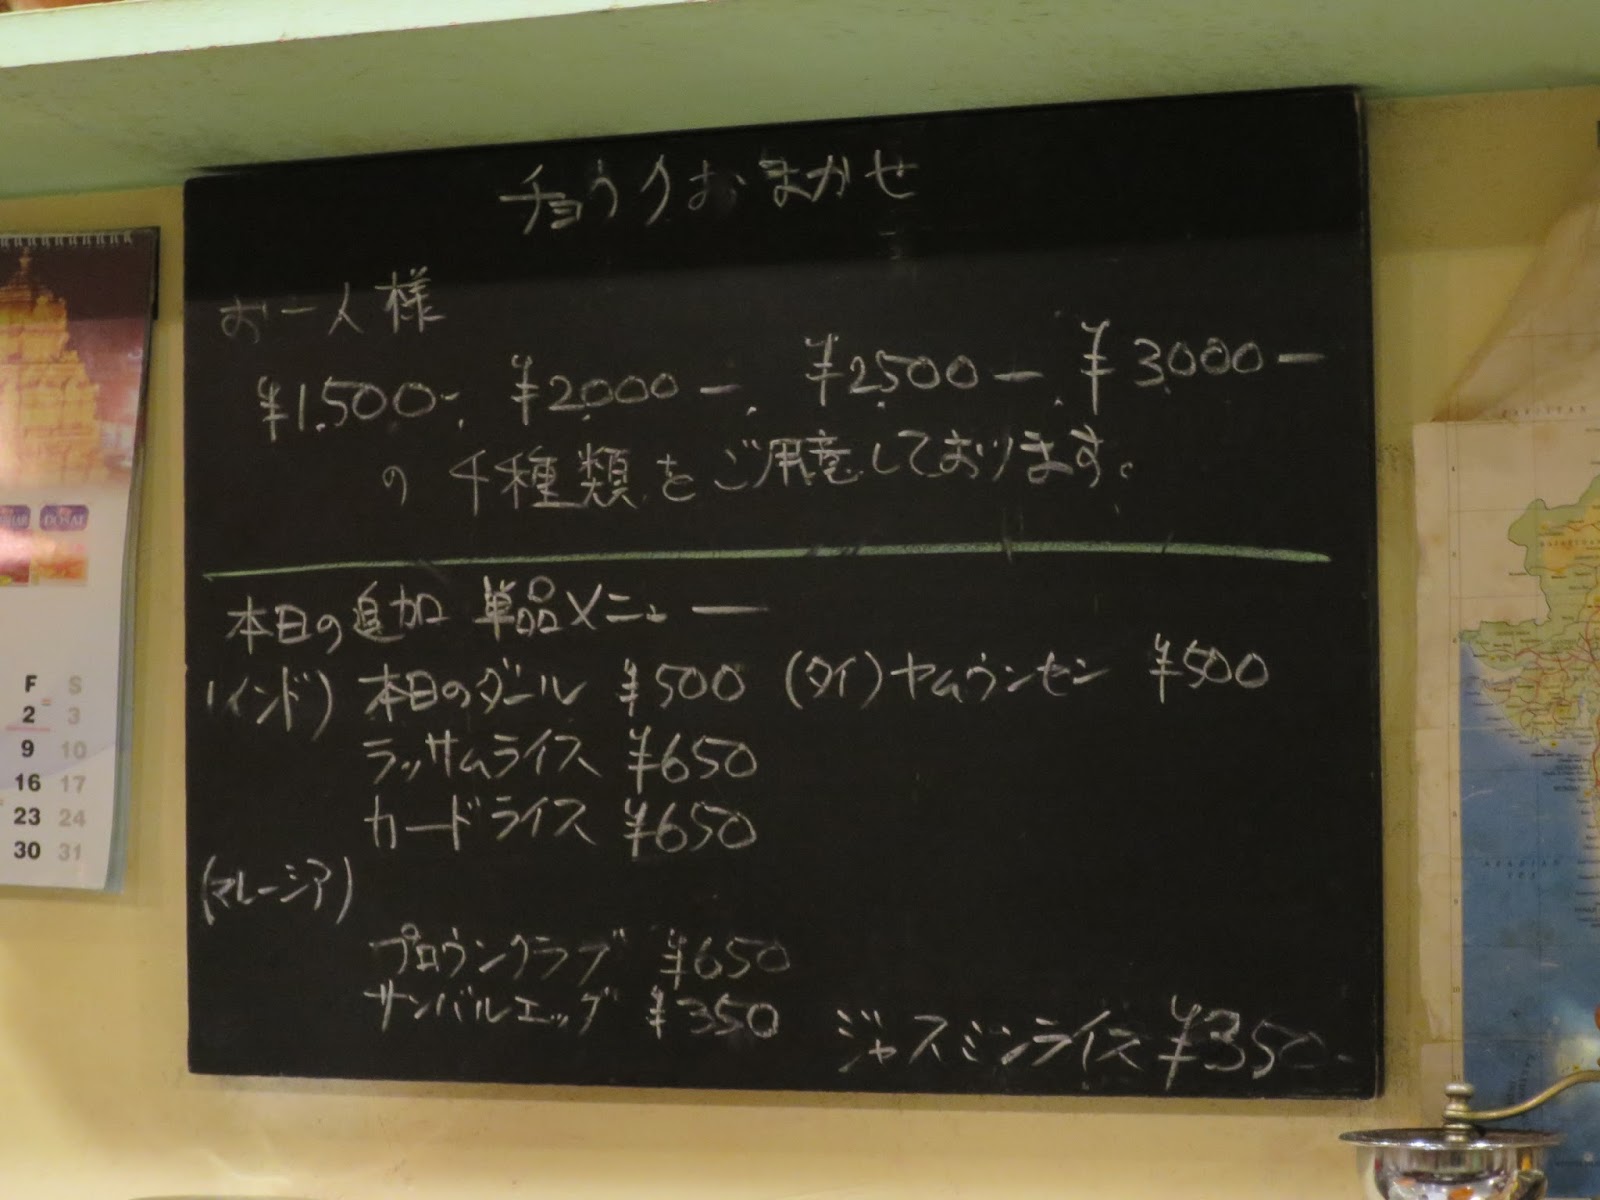 チョウクおまかせ
お一人様
¥1.500-, ¥2.000-, ¥2.500-, ¥3.000-
の4種類をご用意しております。
本日の追加 単品メニュー
(インド) 本日のダール ¥500 (タイ) ヤムウンセン ¥500
ラッサムライス ¥650
カードライス ¥650
(マレーシア)
プロウンクラブ ¥650
サンバルエッグ ¥350
ジャスミンライス ¥350-
F S
2 3
9 10
16 17
23 24
30 31
DOSAI
PAKISTAN
ARABIAN